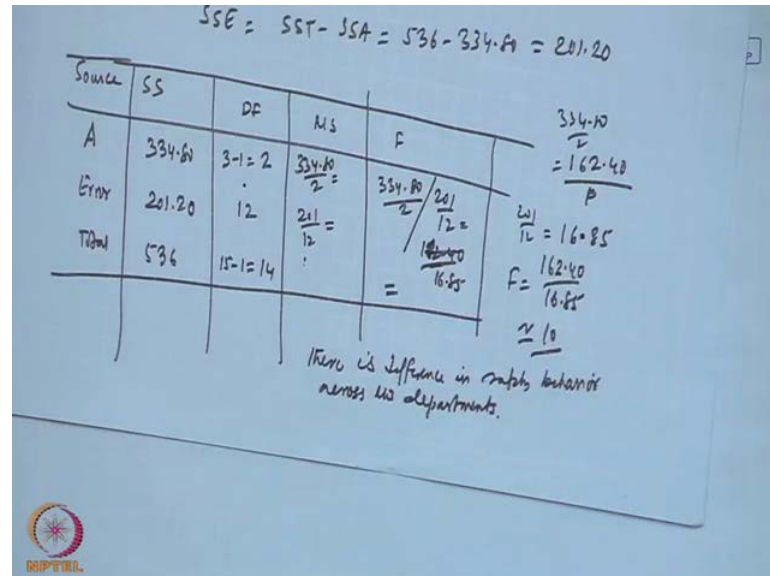 SSE = SST - SSA = 536 - 334.80 = 201.20
Source SS DF MS F
A 334.80 3-1=2 334.80/2 = 334.80/2 / 201/12 =
Error 201.20 12 201/12 = 16.85
Total 536 15-1=14 =
334.80/2
= 162.40
201/12 = 16.85
F = 162.40/16.85
≃ 10
There is difference in safety behavior
across the departments.
NPTEL